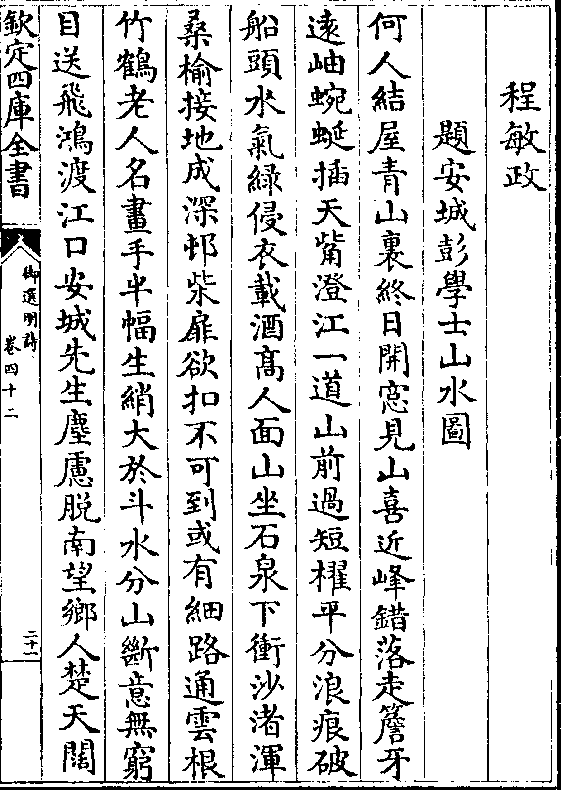 程敏政
題安城彭學士山水圖
何人結屋青山裏終日開窓見山喜近峰錯落走簷牙
遠岫蜿蜒插天觜澄江一道山前過短櫂平分浪痕破
船頭水氣綠侵衣載酒髙人面山坐石泉下衝沙渚渾
桑榆接地成深邨柴扉欲扣不可到或有細路通雲根
竹鶴老人名畫手半幅生綃大於斗水分山斷意無窮
目送飛鴻渡江口安城先生塵慮脱南望鄉人楚天闊
欽定四庫全書
御選明詩
卷四十二
二十一